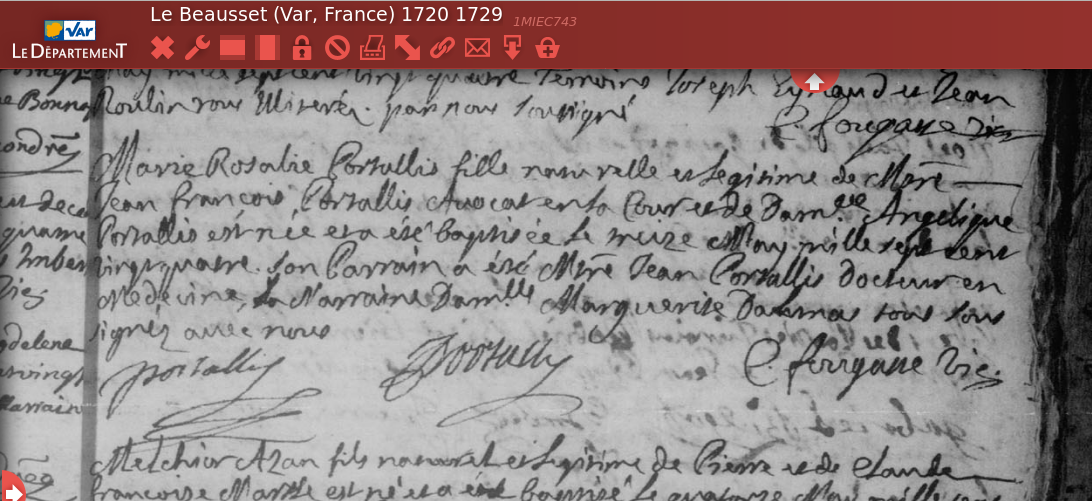 Le Beausset (Var, France) 1720 1729 1MIEC743
VAR
LE DÉPARTEMENT
may mille sept cent vingt quatre Temoins Joseph Eyriaud et Jean
Roulin tous illiteréz. par nous soussigné
Marie Rosalie Portallis fille naturelle et Legitime de Mtre
Jean françois Portallis Avocat en la Cour et de Damlle Angelique
Portallis est née et a été baptisée le treize May mille sept cent
vingt quatre. son Parrain a été Mtre Jean Portallis docteur en
Medecine, la Marraine Damlle Marguerite Daumas tous sous
signéz avec nous
portally Portally
Melchior Azan fils naturel et Legitime de Pierre et de Claude
françoise Marte est né et a eté baptisé Le quatorze May mille